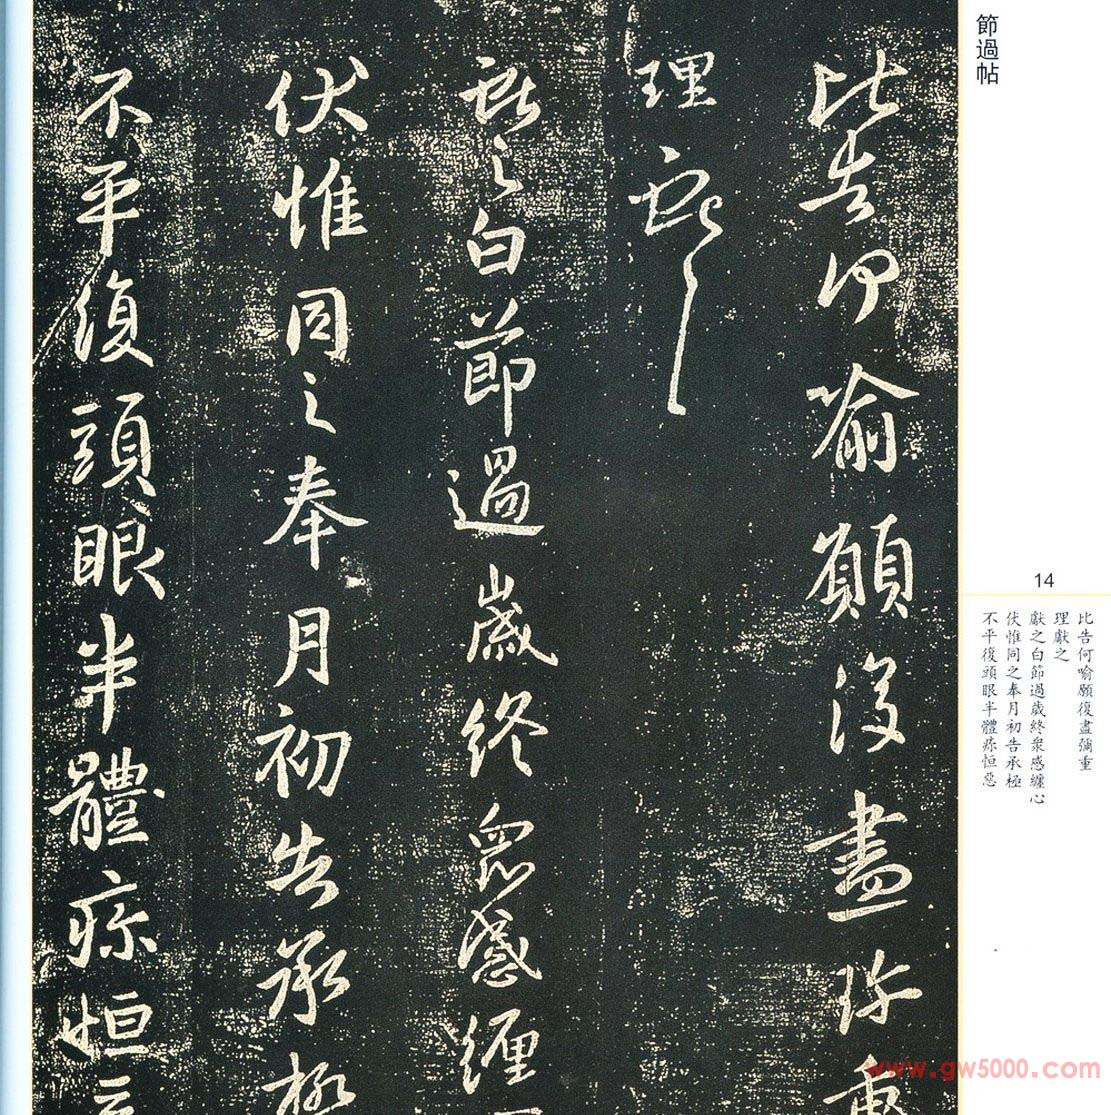 節過帖
比告何喻願復盡珎重
理獻之
獻之白節過歲終衆感纏
伏惟同之奉月初告承極
不平復頭眼半體疼恒
14
比告何喻願復盡彌重
理獻之
獻之白節過歲終衆感纏心
伏惟同之奉月初告承極
不平復頭眼半體疼恒惡
www.gw5000.com